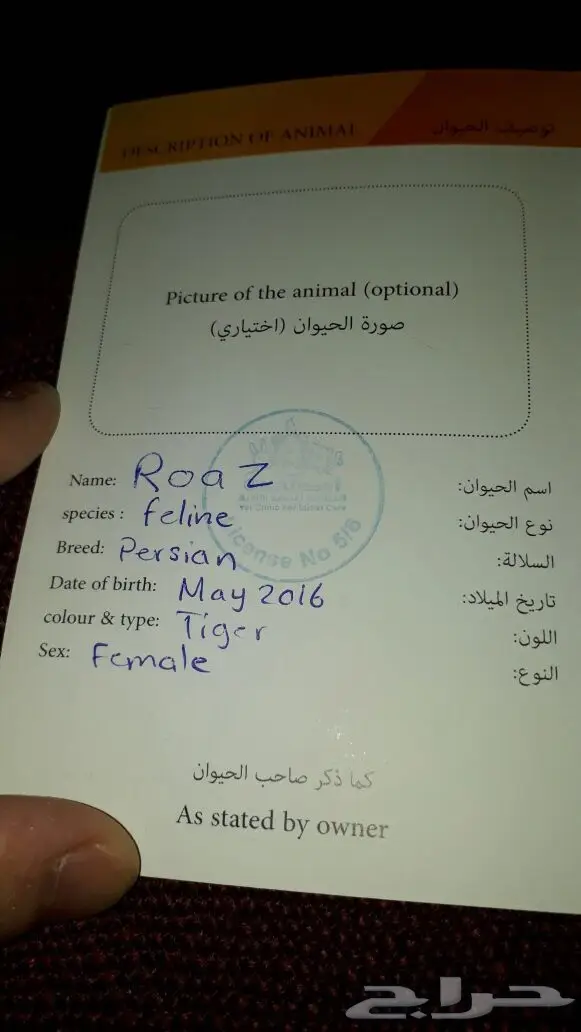 DESCRIPTION OF ANIMAL توصيف الحيوان
Picture of the animal (optional)
صورة الحيوان (اختياري)
Name: Roaz اسم الحيوان:
species : feline نوع الحيوان:
Breed: Persian السلالة:
Date of birth: May 2016 تاريخ الميلاد:
colour & type: Tiger اللون:
Sex: Female النوع:
License No 516
كما ذكر صاحب الحيوان
As stated by owner
حراج